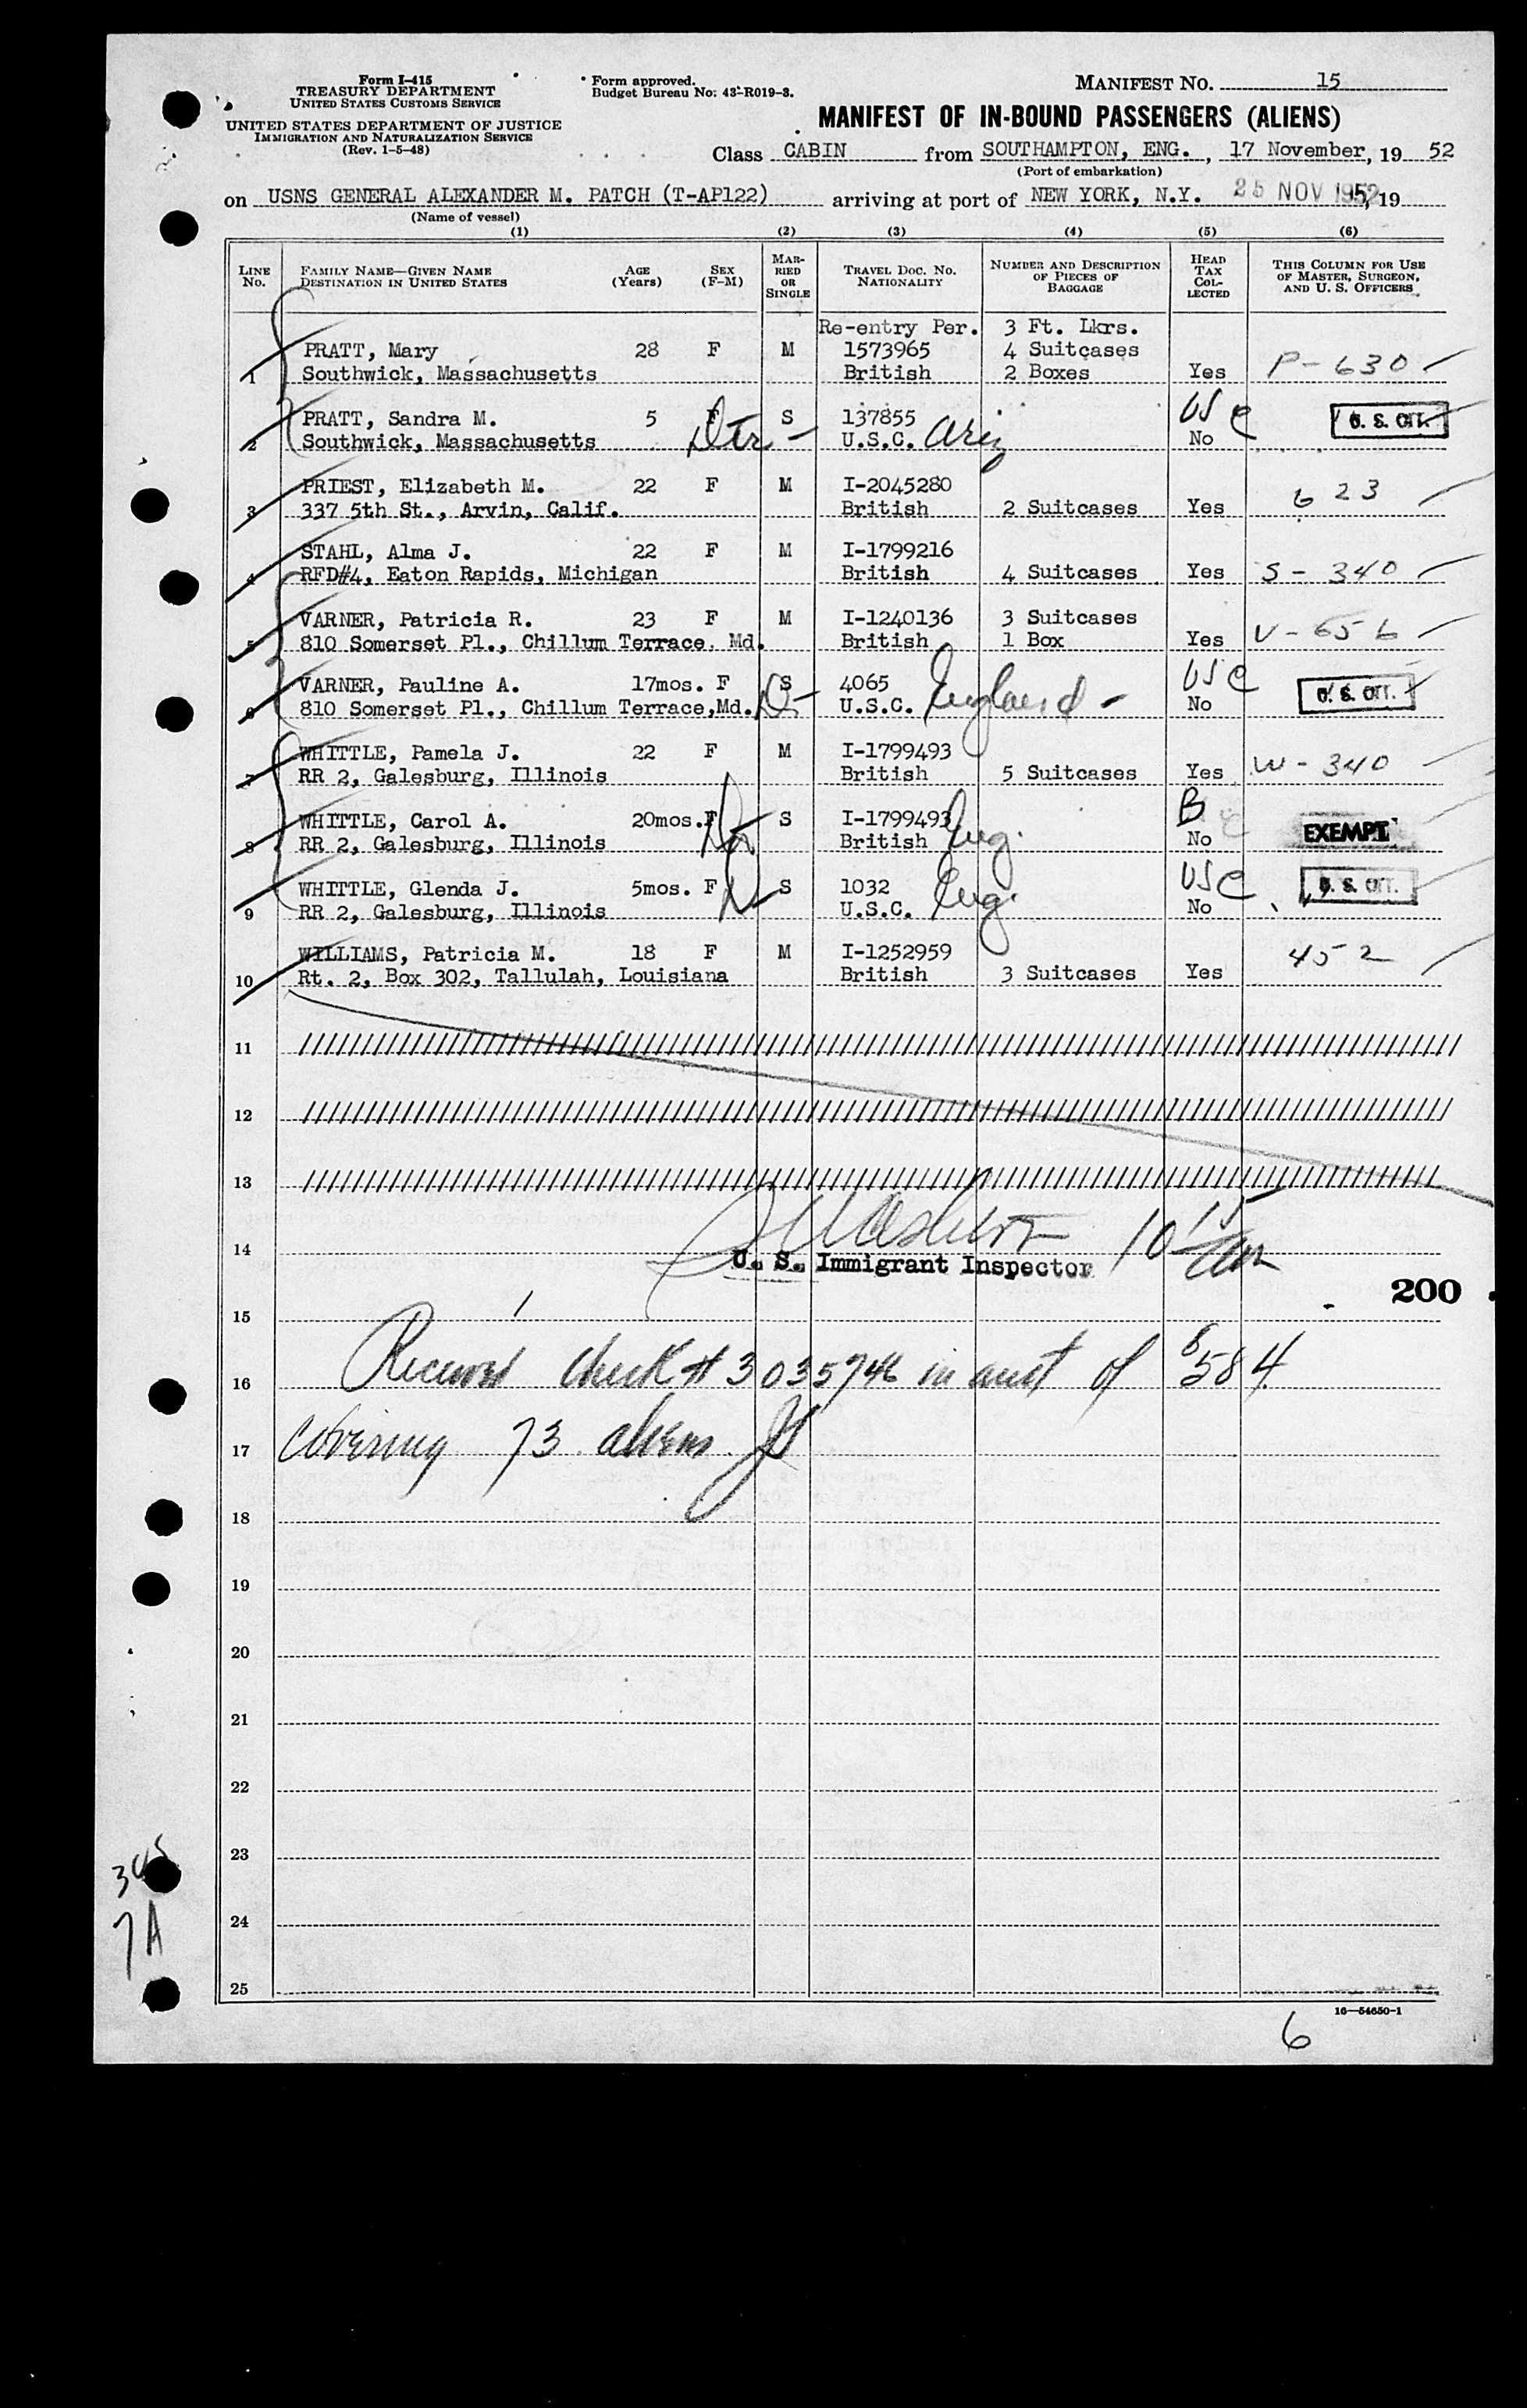 Form I-415
TREASURY DEPARTMENT
UNITED STATES CUSTOMS SERVICE
UNITED STATES DEPARTMENT OF JUSTICE
IMMIGRATION AND NATURALIZATION SERVICE
(Rev. 1-5-48)
Form approved.
Budget Bureau No. 43-R019-3.
MANIFEST NO. 15
MANIFEST OF IN-BOUND PASSENGERS (ALIENS)
Class CABIN from SOUTHAMPTON, ENG., 17 November, 19 52
(Port of embarkation)
on USNS GENERAL ALEXANDER M. PATCH (T-AP122) arriving at port of NEW YORK, N.Y. 25 NOV 1952, 19
(Name of vessel)
(1) (2) (3) (4) (5) (6)
LINE No. FAMILY NAME—GIVEN NAME DESTINATION IN UNITED STATES AGE (Years) SEX (F-M) MARRIED OR SINGLE TRAVEL DOC. NO. NATIONALITY NUMBER AND DESCRIPTION OF PIECES OF BAGGAGE HEAD TAX COLLECTED THIS COLUMN FOR USE OF MASTER, SURGEON, AND U. S. OFFICERS
Re-entry Per. 3 Ft. Lkrs.
PRATT, Mary 28 F M 1573965 4 Suitcases
1 Southwick, Massachusetts British 2 Boxes Yes P-630
PRATT, Sandra M. 5 F S 137855 USC U. S. CIT.
2 Southwick, Massachusetts Dtr - U.S.C. No
PRIEST, Elizabeth M. 22 F M I-2045280 623
3 337 5th St., Arvin, Calif. British 2 Suitcases Yes
STAHL, Alma J. 22 F M I-1799216
4 RFD#4, Eaton Rapids, Michigan British 4 Suitcases Yes S-340
VARNER, Patricia R. 23 F M I-1240136 3 Suitcases
5 810 Somerset Pl., Chillum Terrace, Md. British 1 Box Yes V-656
VARNER, Pauline A. 17mos. F S 4065 USC U. S. CIT.
6 810 Somerset Pl., Chillum Terrace,Md. D- U.S.C. England - No
WHITTLE, Pamela J. 22 F M I-1799493
7 RR 2, Galesburg, Illinois British 5 Suitcases Yes W-340
WHITTLE, Carol A. 20mos. F S I-1799493 B
8 RR 2, Galesburg, Illinois British Eng. No EXEMPT
WHITTLE, Glenda J. 5mos. F S 1032 USC U. S. CIT.
9 RR 2, Galesburg, Illinois U.S.C. Eng. No
WILLIAMS, Patricia M. 18 F M I-1252959 452
10 Rt. 2, Box 302, Tallulah, Louisiana British 3 Suitcases Yes
11
12
13
14
U. S. Immigrant Inspector 10 15 am
200
15
16 Received check # 3035746 in amt of $584
17 covering 73 aliens
18
19
20
21
22
23
24
25
7A
16—54650-1
6